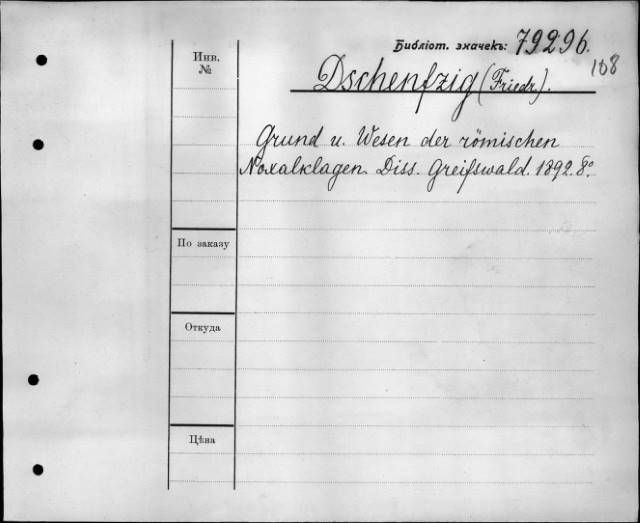 Библіот. значекъ: 79296.
108
Инв.
№
Dschenfzig (Friedr.).
Grund u. Wesen der römischen
Noxalklagen. Diss. Greifswald. 1892. 8°.
По заказу
Откуда
Цѣна